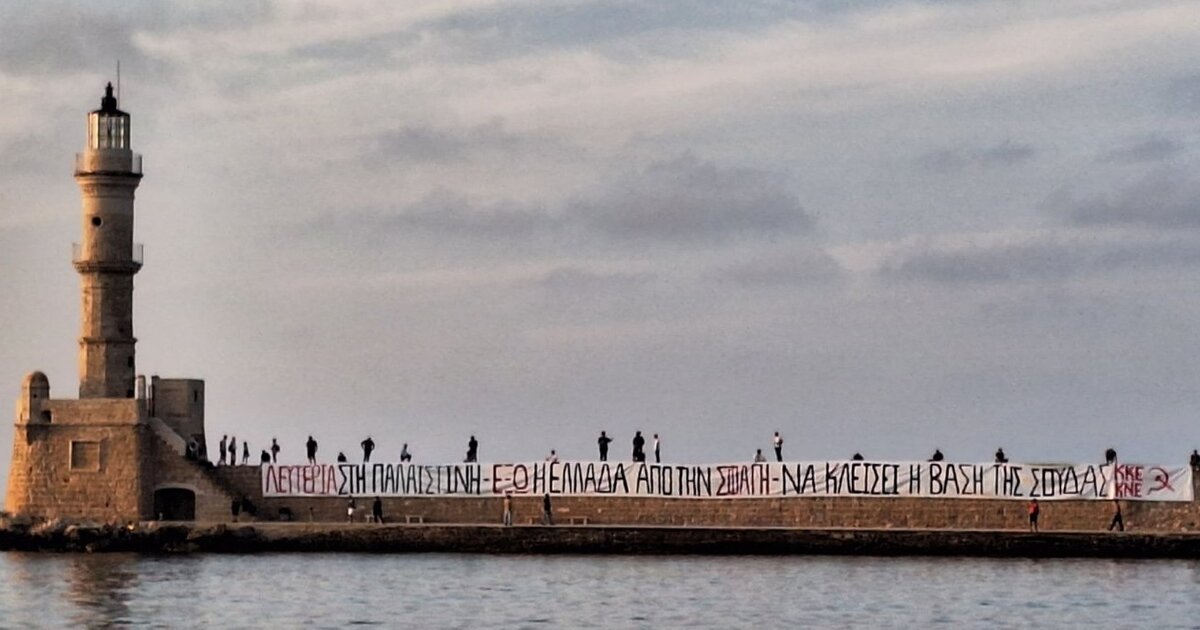 ΛΕΥΤΕΡΙΑ ΣΤΗ ΠΑΛΑΙΣΤΙΝΗ - ΕΞΩ Η ΕΛΛΑΔΑ ΑΠΟ ΤΗΝ ΣΦΑΓΗ - ΝΑ ΚΛΕΙΣΕΙ Η ΒΑΣΗ ΤΗΣ ΣΟΥΔΑΣ
ΚΚΕ
ΚΝΕ